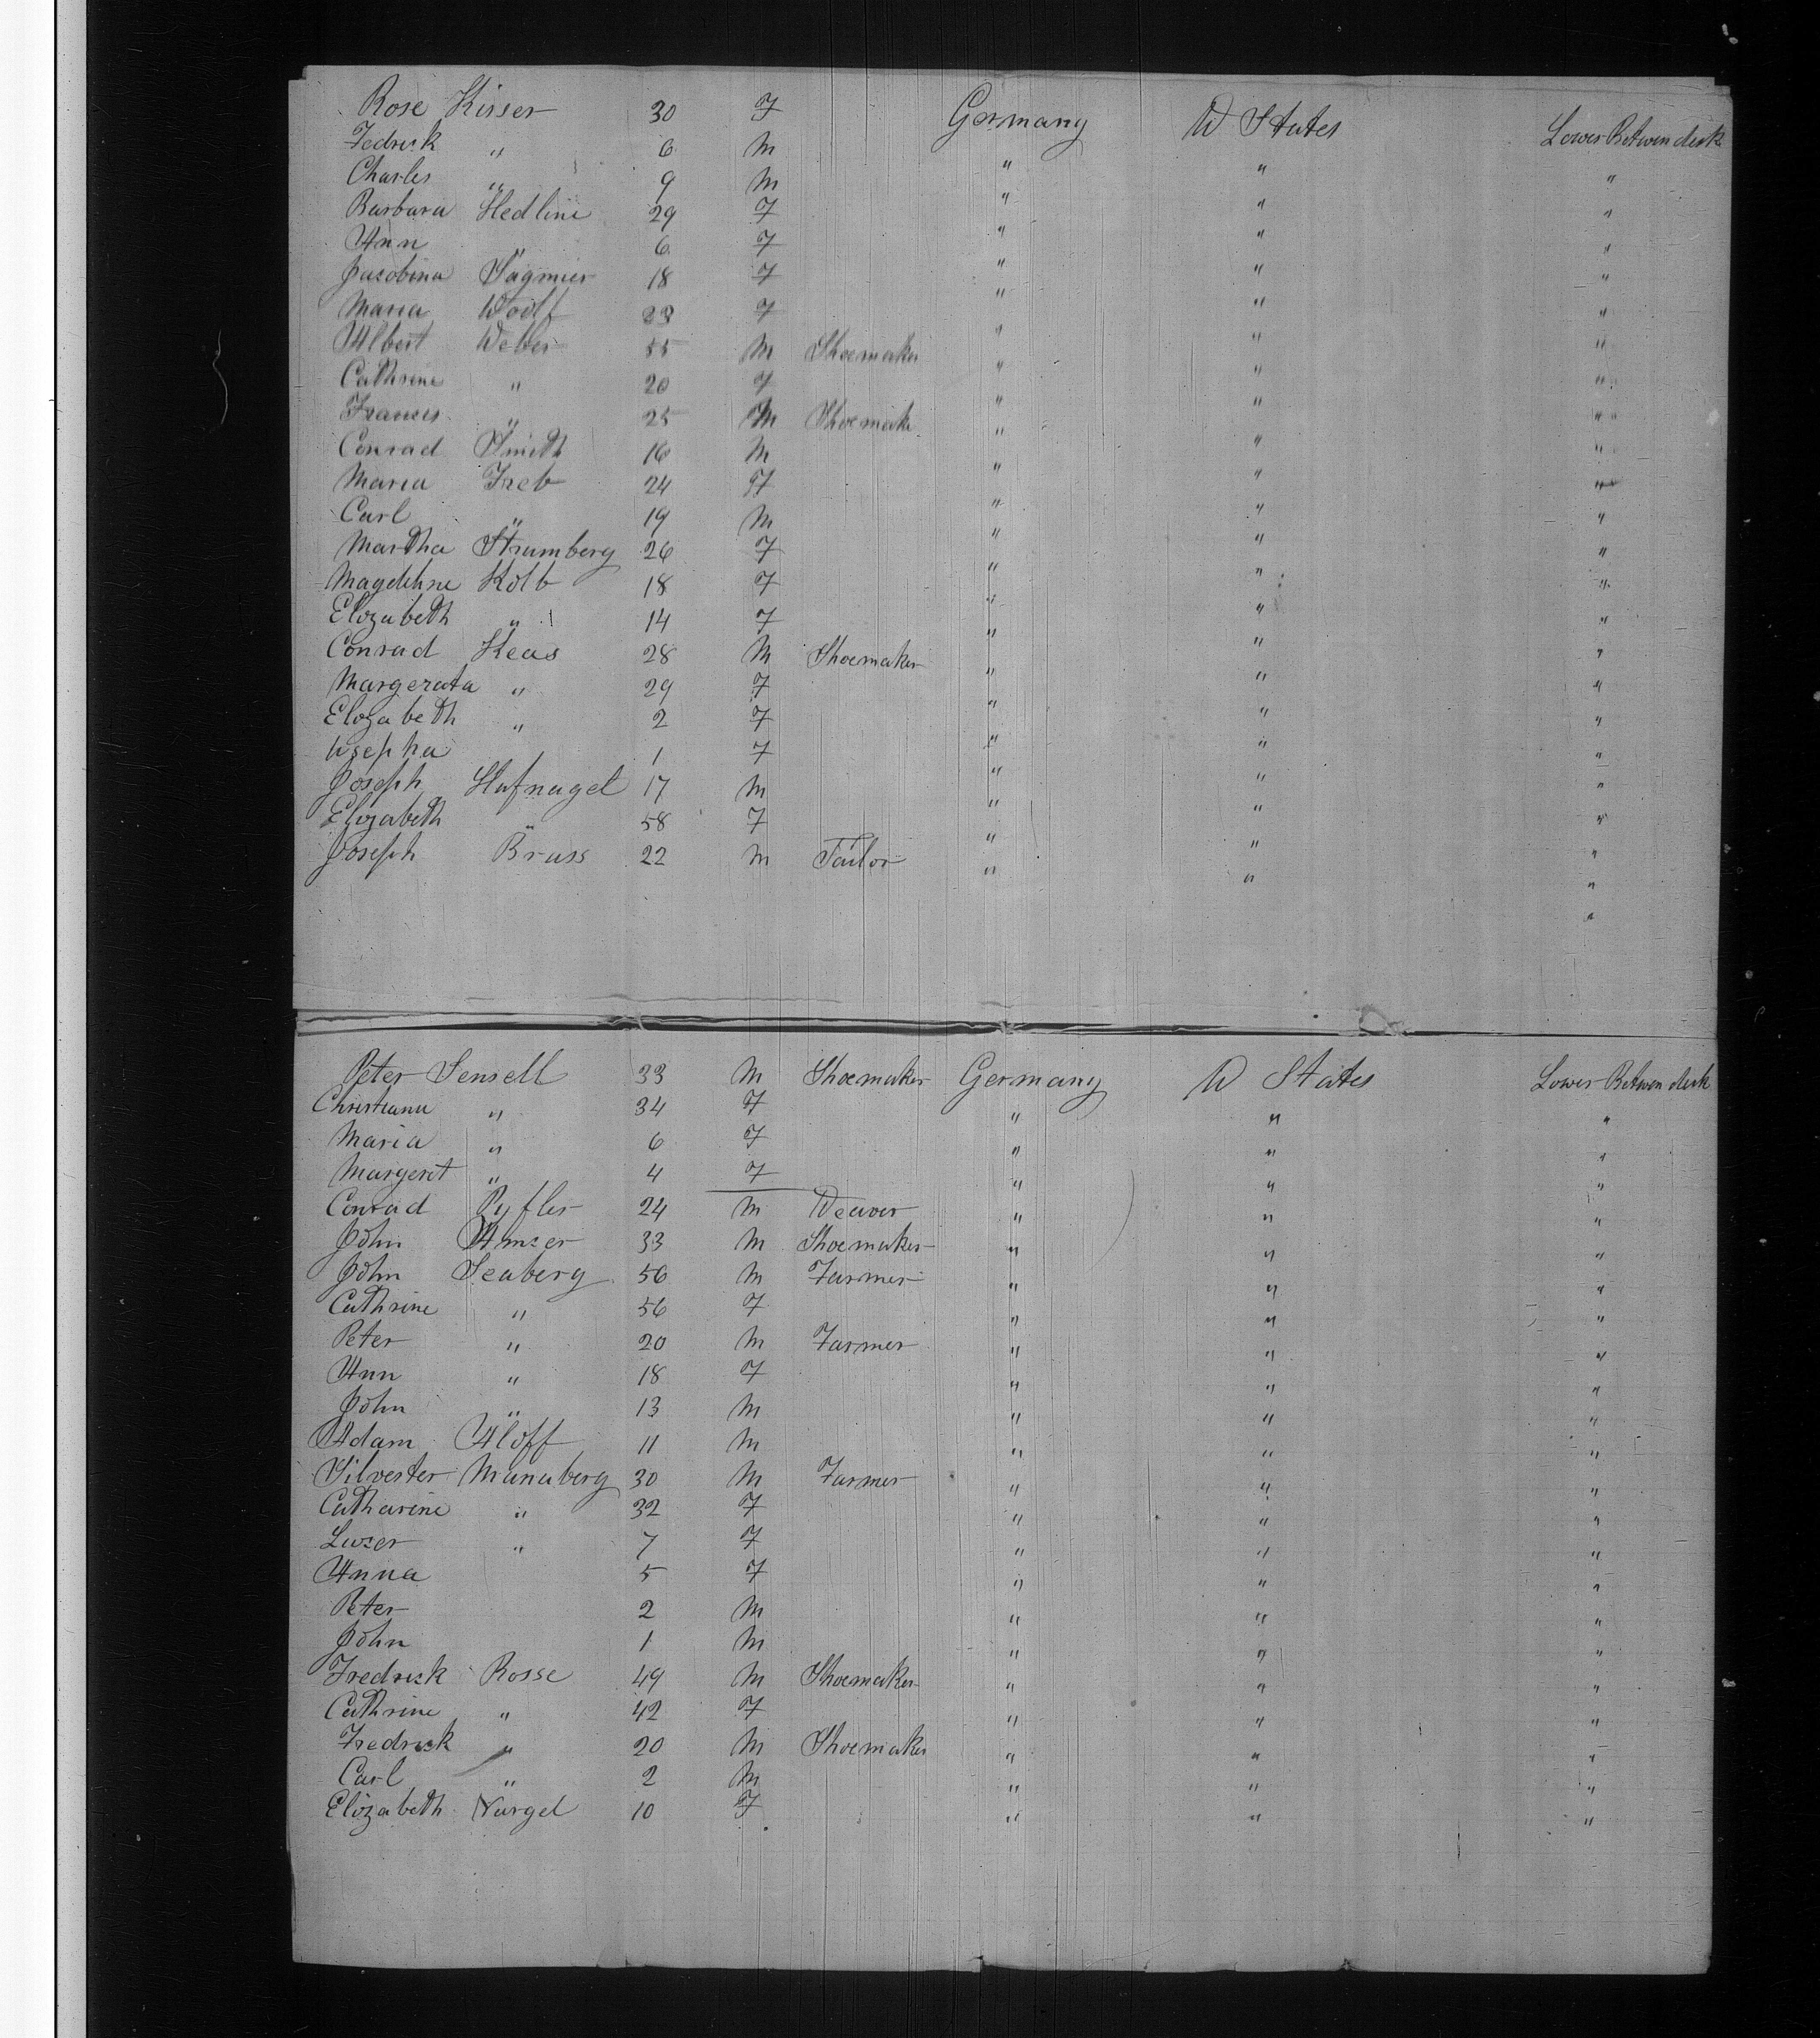 Rose Kisser 30 F Germany U States Lower Betwen deck
Fedrick " 6 M " " "
Charles " 9 M " " "
Barbara Hedline 29 F " " "
Ann " 6 F " " "
Jacobina Sagmier 18 F " " "
Maria Woolf 23 F " " "
Albert Weber 55 M Shoemaker " " "
Cathrine " 20 F " " "
Frances " 25 M Shoemake " " "
Conrad Smith 16 M " " "
Maria Freb 24 F " " "
Carl " 19 M " " "
Martha Strumberg 26 F " " "
Magdehne Kolb 18 F " " "
Elozabeth " 14 F " " "
Conrad Keas 28 M Shoemaker " " "
Margerata " 29 F " " "
Elozabeth " 2 F " " "
Usepha 1 F " " "
Joseph Hafnagel 17 M " " "
Elozabeth " 58 F " " "
Joseph Bruss 22 M Tailor " " "
Peter Sensell 33 M Shoemaker Germany U States Lower Betwen deck
Christiana " 34 F " " "
Maria " 6 F " " "
Margeret " 4 F " " "
Conrad Pyfler 24 M Weaver " " "
John Amser 33 M Shoemaker " " "
John Seaberg 56 M Farmer " " "
Cathrine " 56 F " " "
Peter " 20 M Farmer " " "
Ann " 18 F " " "
John " 13 M " " "
Adam Aloff 11 M " " "
Silvester Manaberg 30 M Farmer " " "
Catharine " 32 F " " "
Luser " 7 F " " "
Anna 5 F " " "
Peter 2 M " " "
John 1 M " " "
Fredrick Rosse 49 M Shoemaker " " "
Cathrine " 42 F " " "
Fredrick " 20 M Shoemaker " " "
Carl " 2 M " " "
Elozabeth Nargel 10 F " " "